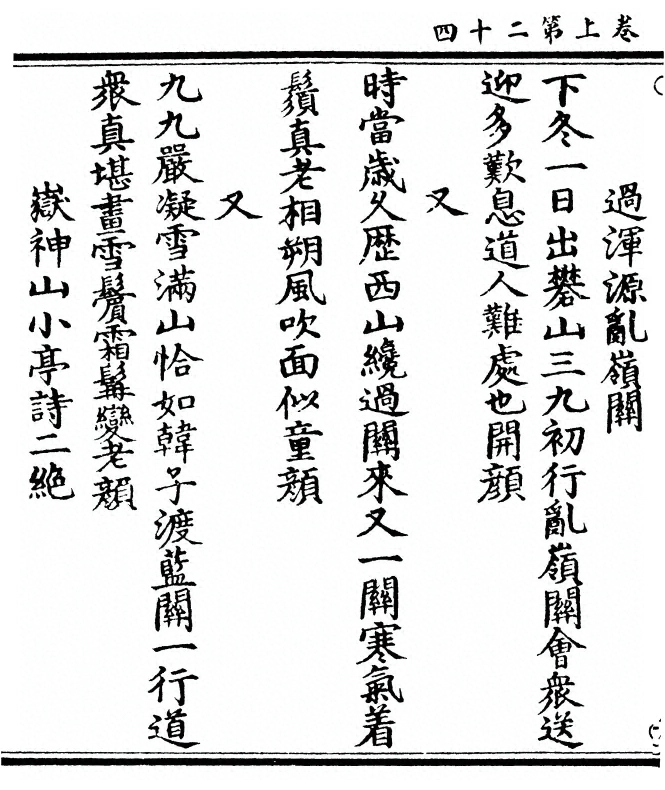 卷上第二十四
過渾源亂嶺關
下冬一日出礬山三九初行亂嶺關會衆送
迎多歎息道人難處也開顔
又
時當歲久歴西山纔過關來又一關寒氣着
鬚真老相朔風吹面似童顔
又
九九嚴凝雪滿山恰如韓子渡藍關一行道
衆真堪畫雪鬢霜髯變老顔
嶽神山小亭詩二絶